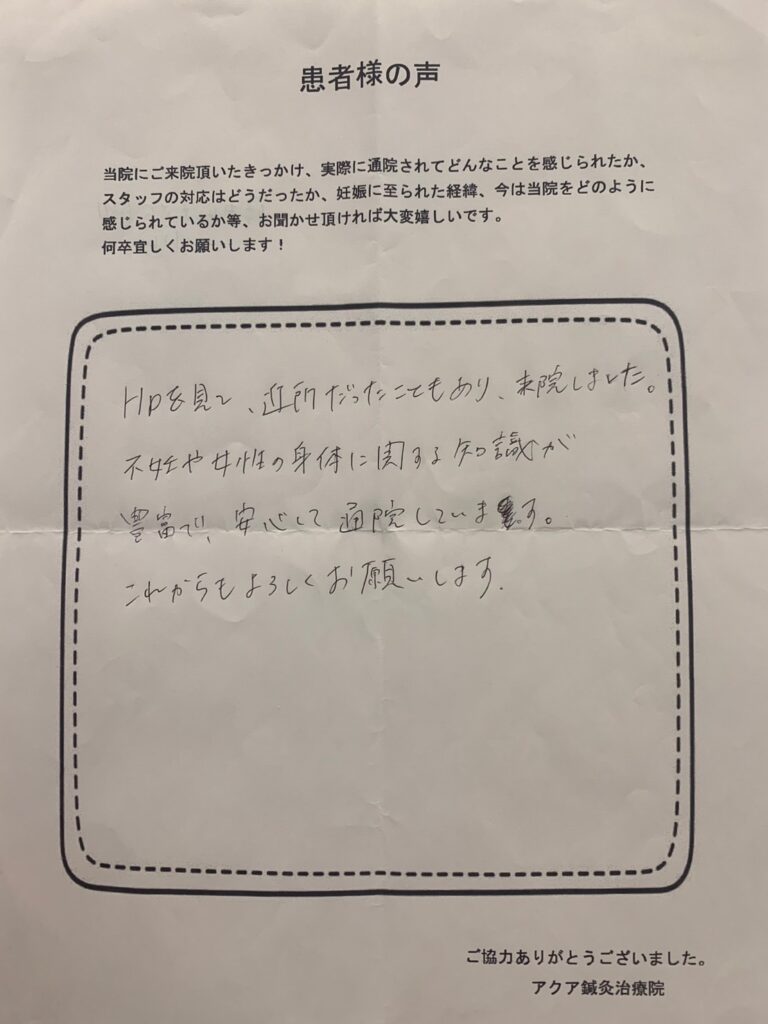 患者様の声
当院にご来院頂いたきっかけ、実際に通院されてどんなことを感じられたか、
スタッフの対応はどうだったか、妊娠に至られた経緯、今は当院をどのように
感じられているか等、お聞かせ頂ければ大変嬉しいです。
何卒宜しくお願いします！
HPを見て、近所だったこともあり、来院しました。
不妊や女性の身体に関する知識が
豊富で、安心して通院しています。
これからもよろしくお願いします.
ご協力ありがとうございました。
アクア鍼灸治療院